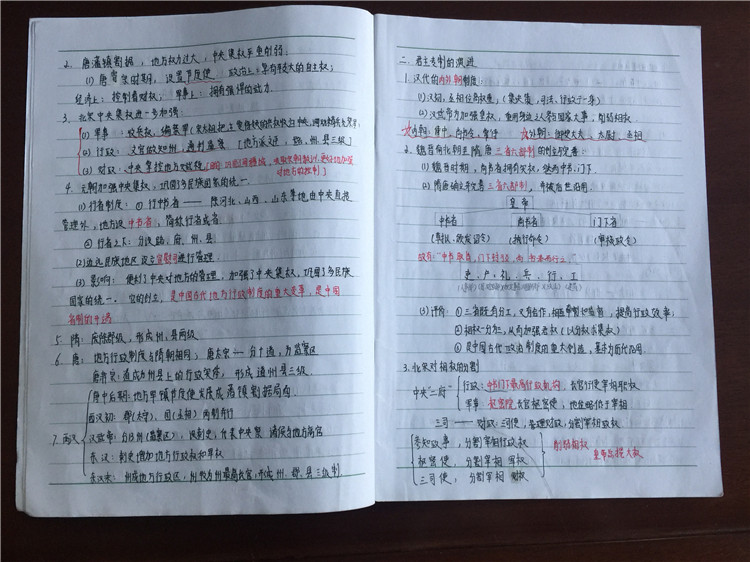 2. 唐藩镇割据，地方权力过大，中央集权严重削弱.
(1) 唐睿宗时期，设置节度使 政治上：享有较大的自主权；
经济上：控制着财权； 军事上：拥有强悍的武力.
3. 北宋中央集权进一步加强：
(2) 行政：文官做知州，通判监察 [地方派进，路，州，县三级]
(3) 财权：中央掌控地方财赋
对地方的控制]
4. 元朝加强中央集权，巩固多民族国家的统一.
(1) 行省制度：① 行中书省 —— 除河北、山西、山东等地由中央直接
管理外，地方设中书省，简称行省或省.
② 行省之下：分设路、府、州、县
(2) 边远民族地区设立宣慰司进行管理.
(3) 影响：便利了中央对地方的管理，加强了中央集权，巩固了多民族
国家的统一. 它的创立，是中国古代地方行政制度的重大变革，是中国
省制的开端
5. 隋：废除郡级，形成州、县两级
6. 唐：地方行政制度与隋朝相同；唐太宗 — 分十道，为监察区
形成道州县三级.
唐中后期：地方军镇节度使发展成藩镇割据局面.
西汉初：郡(大守)、国(丞相)两制并行
7. 两汉 汉武帝：分13州(监察区)，设刺史；代表中央监
东汉：刺史增加地方行政权和军权
东汉末：州成地方行政区，州牧为州最高长官，形成州、郡、县三级制.
二. 君主专制的演进
1. 汉代的内外朝制度：
(1) 汉初，丞相位高权重，(集决策，司法，行政于一身)
(2) 汉武帝为加强皇权，重用身边人参与国家大事，削弱相权
内朝：侍中、尚书令、常侍 外朝：御史大夫、太尉、丞相
2. 魏晋南北朝至隋唐三省六部制的创立与完善：
(1) 魏晋时期，尚书省拥有实权，继而中书、门下.
(2) 隋唐确立并完善三省六部制，并被后世沿用.
皇帝
中书省 尚书省 门下省
(草拟、颁发诏令) (执行命令) (审核政令)
吏、户、礼、兵、刑、工
(3) 评价：① 三省既有分工，又有合作，相互牵制和监督，提高行政效率；
② 相权一分为三，从而加强君权 (以分权求集权)
③ 是中国古代政治制度的重大创造，基本为后代沿用.
3. 北宋对相权的分割
中央“二府” 行政：中书门下最高行政机构，长官行使宰相职权
军事：枢密院，长官枢密使；地位略低于宰相
三司 —— 财政：三司使，管理财政，分割宰相财权
参知政事，分割宰相行政权
枢密使，分割宰相军权 削弱相权
三司使，分割宰相财权 皇帝总揽大权